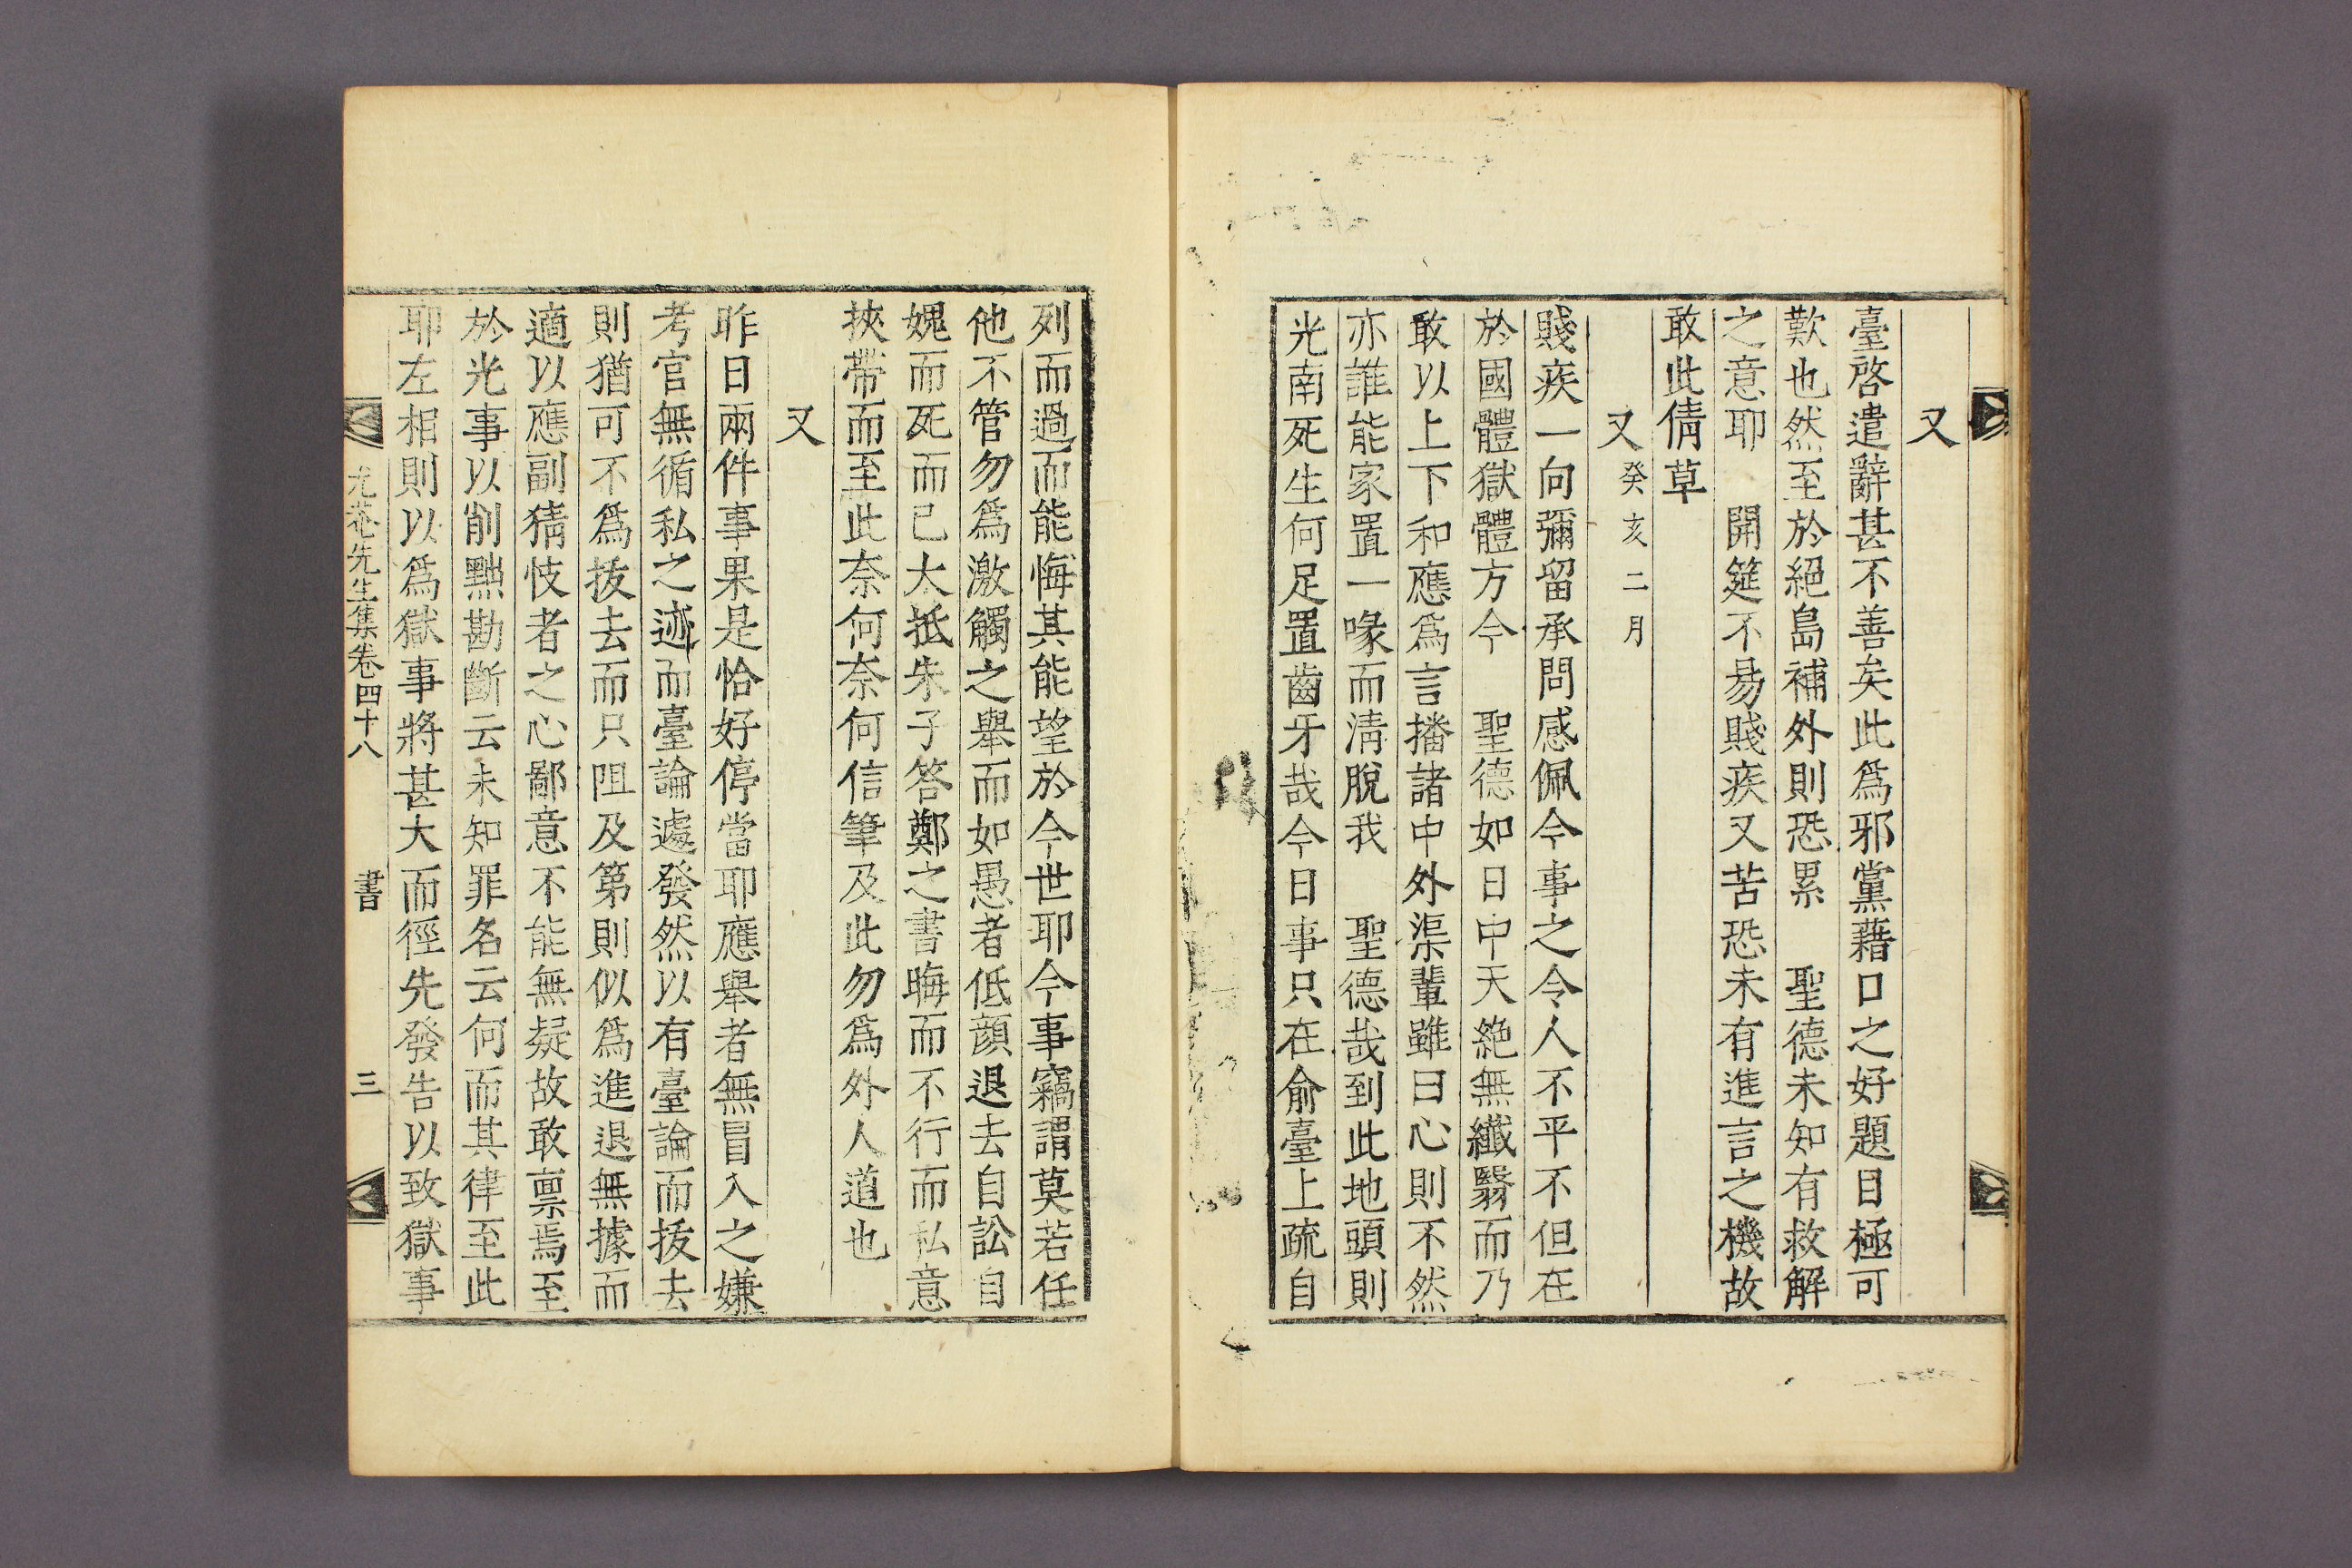 又
臺啓遣辭甚不善矣此爲邪黨藉口之好題目極可
歎也然至於絕島補外則恐累　聖德未知有救解
之意耶　開筵不易賤疾又苦恐未有進言之機故
敢此倩草
又癸亥二月
賤疾一向彌留承問感佩今事之令人不平不但在
於國體獄體方今　聖德如日中天絶無纖翳而乃
敢以上下和應爲言播諸中外渠輩雖曰心則不然
亦誰能家置一喙而淸脫我　聖德哉到此地頭則
光南死生何足置齒牙哉今日事只在俞臺上疏自
列而過而能悔其能望於今世耶今事竊謂莫若任
他不管勿爲激觸之舉而如愚者低顔退去自訟自
媿而死而已大抵朱子答鄭之書晦而不行而私意
挾帶而至此奈何奈何信筆及此勿爲外人道也
又
昨日兩件事果是恰好停當耶應舉者無冒入之嫌
考官無循私之迹而臺論遽發然以有臺論而拔去
則猶可不爲拔去而只阻及第則似爲進退無據而
適以應副猜忮者之心鄙意不能無疑故敢禀焉至
於光事以削黜勘斷云未知罪名云何而其律至此
耶左相則以爲獄事將甚大而徑先發告以致獄事
尤菴先生集卷四十八　書　三